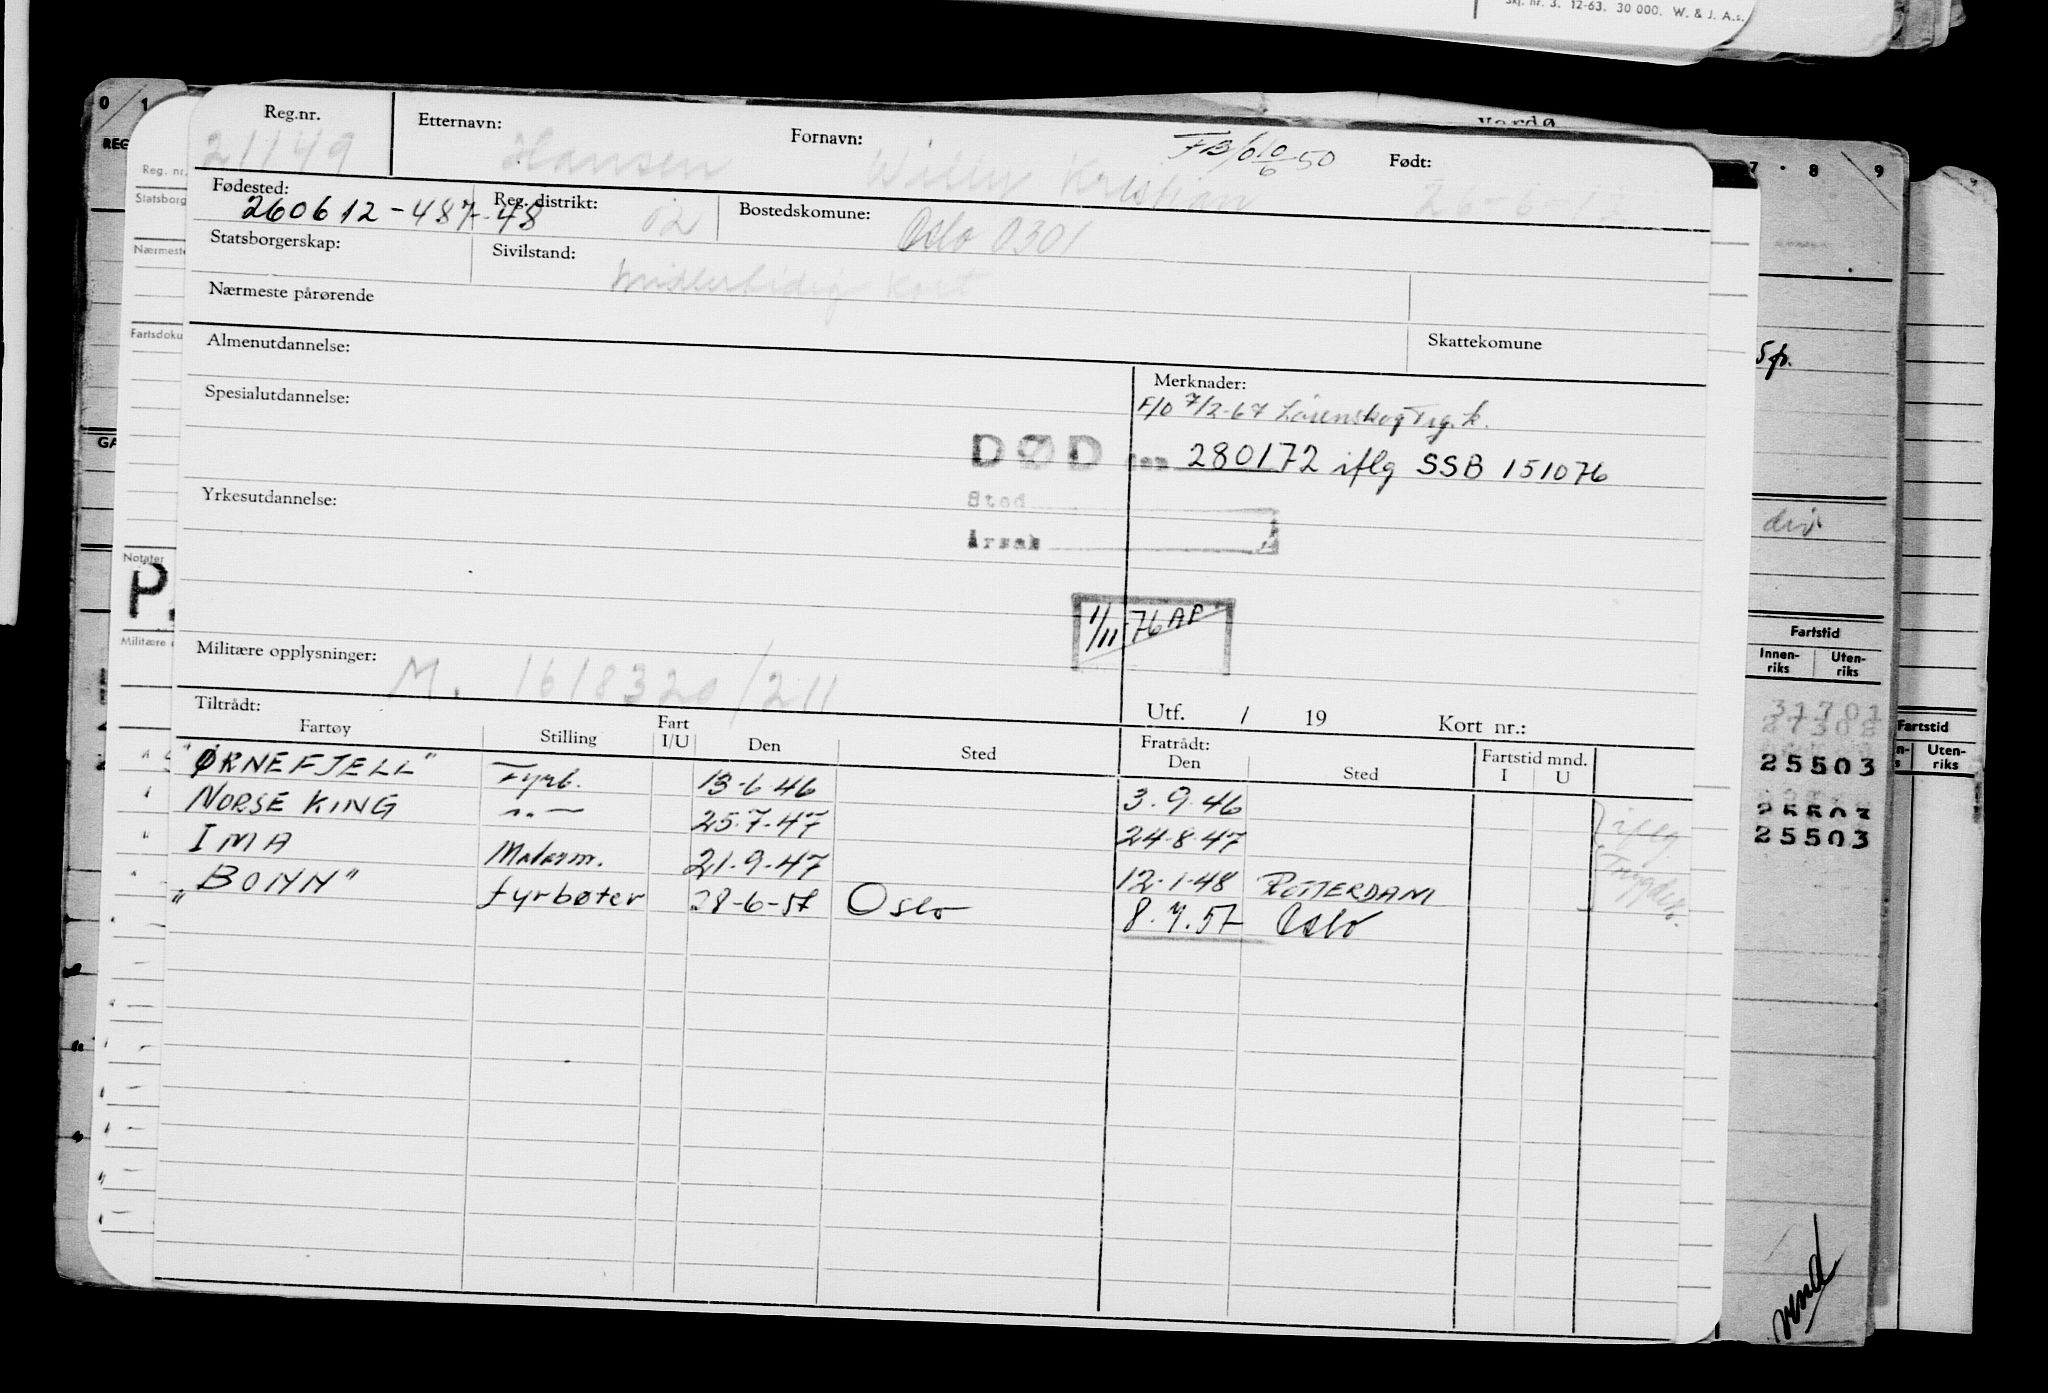 Skj. nr. 3. 12-63. 30 000. W. & J. A.s.
Vardø
0 1 7 8 9
Reg.nr. Etternavn: Fornavn: FB/6 10/6-50 Født:
21149 Hansen Willy Kristian 26-6-12
Fødested: Reg. distrikt: Bostedskomune:
260612-487-48 02 Oslo 0301
Statsborgerskap: Sivilstand:
Midlertidig Kort
Nærmeste pårørende
Almenutdannelse: Skattekomune
Spesialutdannelse: Merknader:
F/O 7/2-67 Lørenskog Trg.k.
DØD den 280172 iflg SSB 151076
Yrkesutdannelse: Sted
Årsak
1/11-76 AP
Militære opplysninger: M. 1618320/211
Tiltrådt: Utf. / 19 Kort nr.:
Fartøy Stilling Fart I/U Den Sted Fratrådt: Den Sted Fartstid mnd. I U
"ØRNEFJELL" Fyrb. 13-6-46 3.9.46
NORSE KING -"- 25.7.47 24-8-47 iflg
IMA Matrosm. 21.9.47 12-1-48 ROTTERDAM Trygdek.
"BONN" fyrbøter 28-6-57 Oslo 8.7.57 Oslo
REG
Reg. nr.
Statsborg
Nærmeste
Fartsdoku
GA
Notater
P.
Militære
5p.
div
Fartstid
Innen-riks Uten-riks
31701
27302
25503
25503
25503
Fartstid
Uten-riks
vend